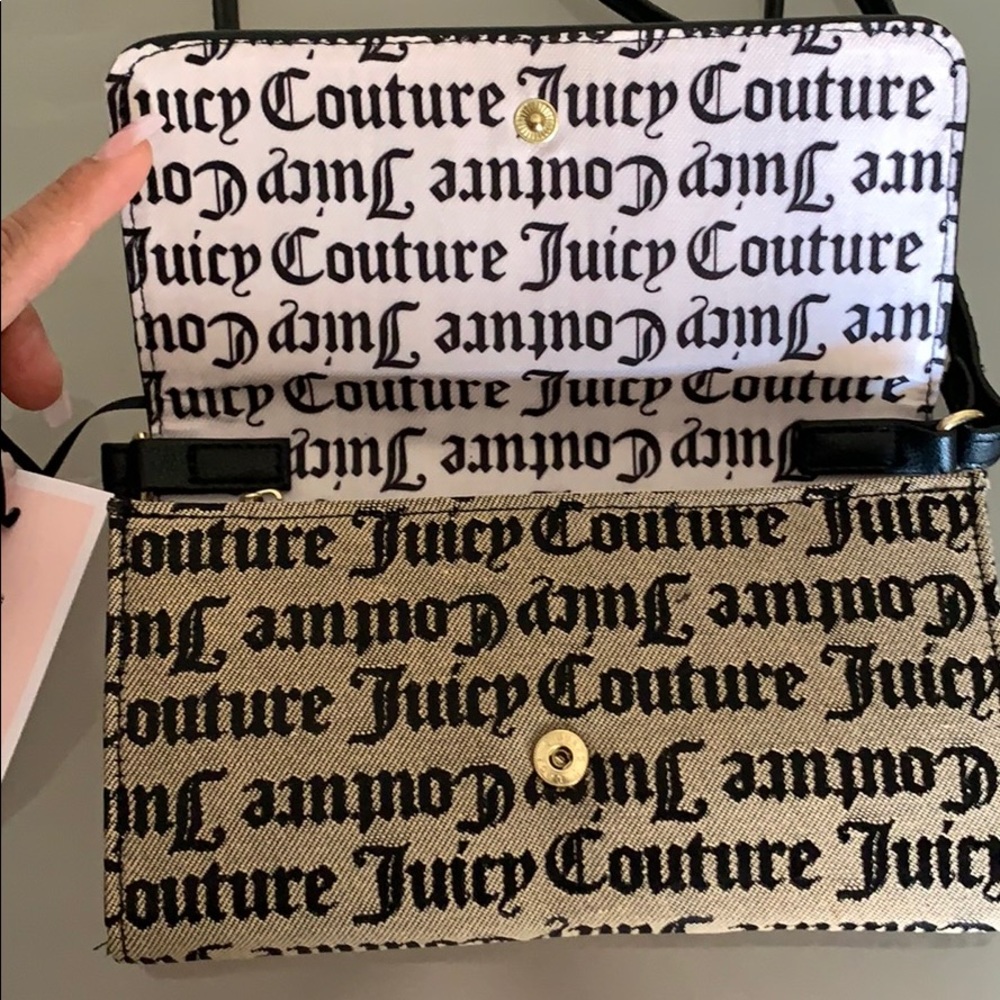 Juicy Couture Juicy Couture
Cou Juicy Couture Juicy ure
Juicy Couture Juicy Couture
Cou Juicy Couture Juicy ure
Juicy Couture Juicy Couture
Juicy Couture Juicy
outure Juicy Couture Juicy
Jui Couture Juicy Couture
outure Juicy Couture Juicy
Jui Couture Juicy Couture
outure Juicy Couture Juicy